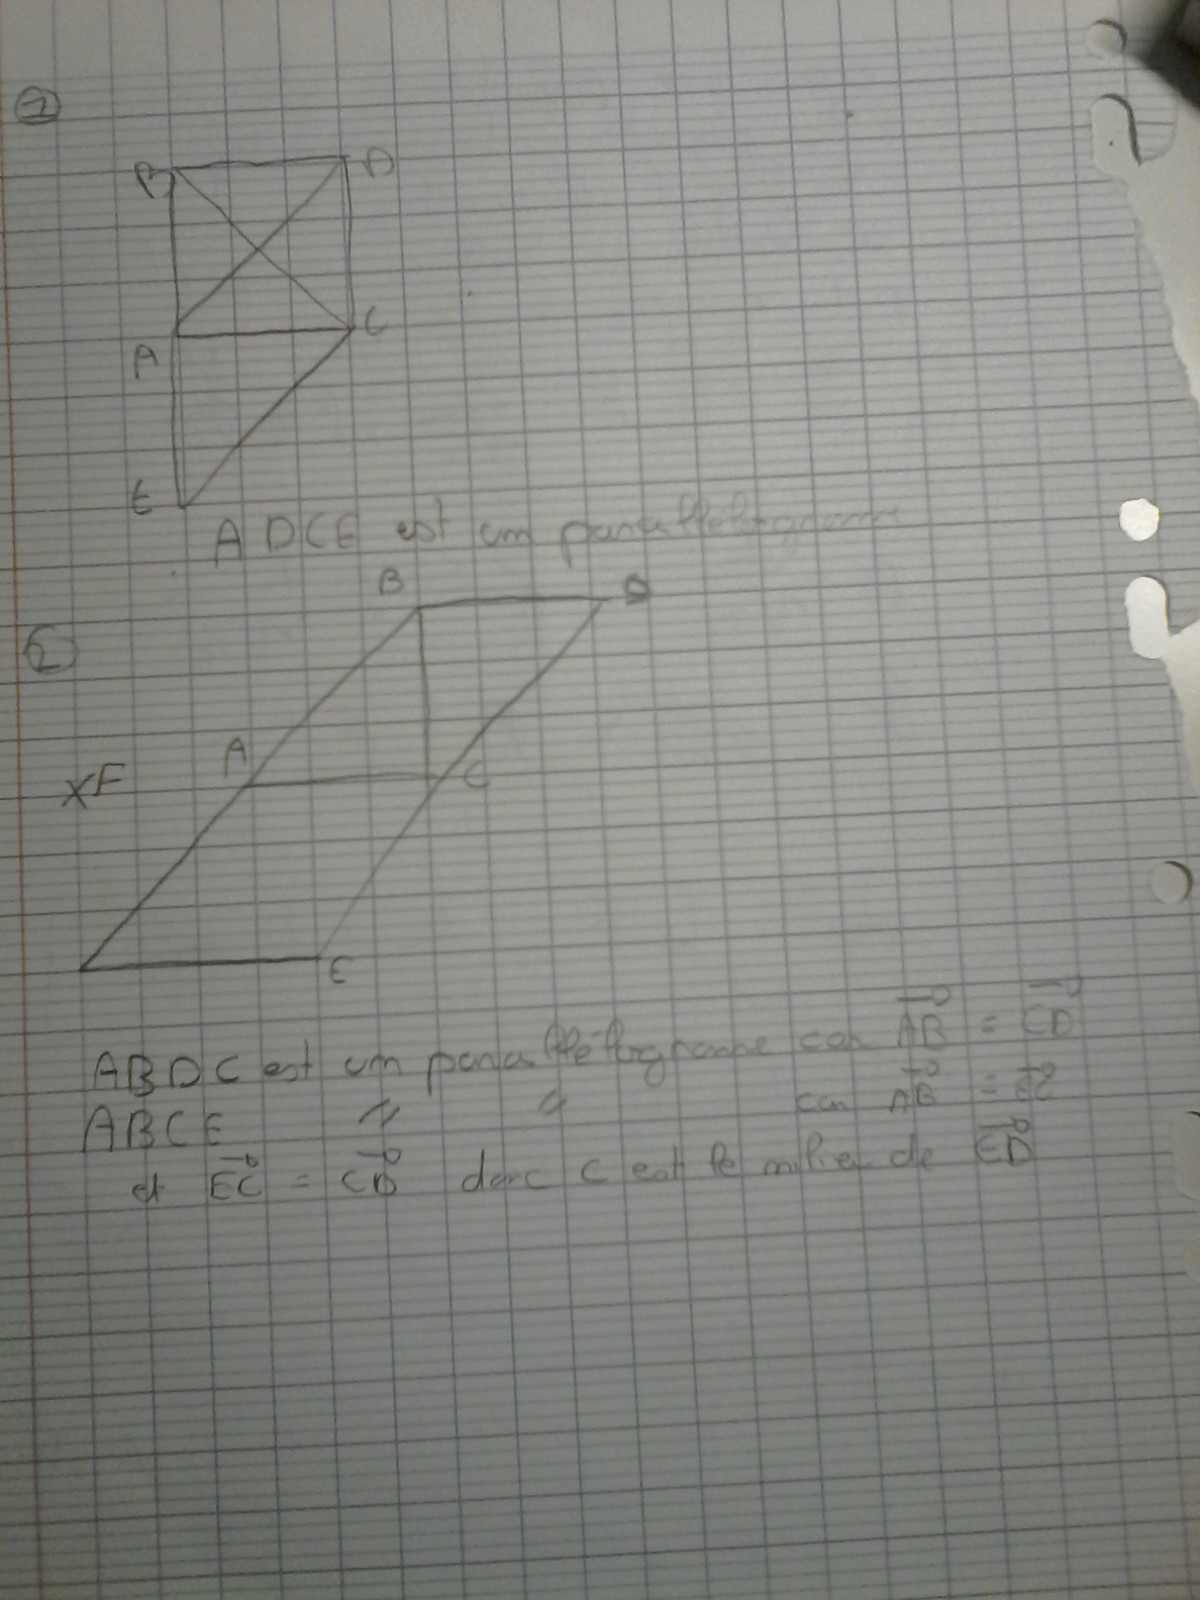 1
B D
A C
E
ADCE est un parallélogramme
B D
2
A C
xF
E
ABDC est un parallélogramme car AB = CD
ABCE " " car AB = EC
et EC = CD donc C est le milieu de ED